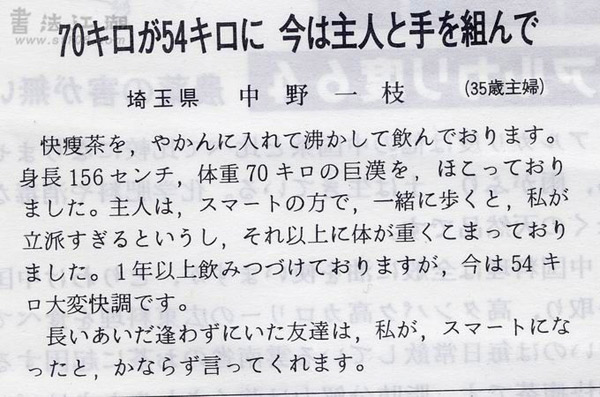 書法江湖
70キロが54キロに 今は主人と手を組んで
埼玉県 中野一枝 (35歳主婦)
快痩茶を，やかんに入れて沸かして飲んでおります。
身長156センチ，体重70キロの巨漢を，ほこっており
ました。主人は，スマートの方で，一緒に歩くと，私が
立派すぎるというし，それ以上に体が重くこまっており
ました。1年以上飲みつづけておりますが，今は54キ
ロ大変快調です。
長いあいだ逢わずにいた友達は，私が，スマートにな
ったと，かならず言ってくれます。